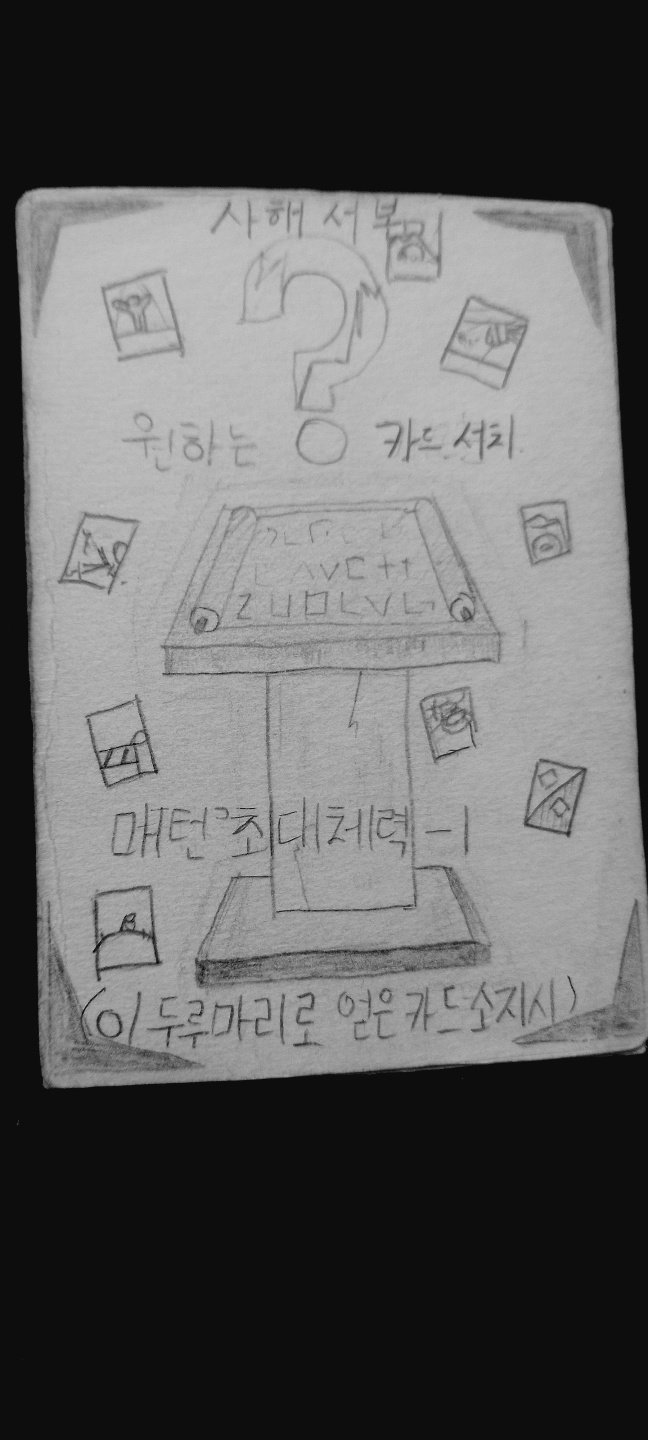 사해 서복
?
원하는 카드 서치
매턴 최대체력 -1
(이 두루마리로 얻은 카드 소지시)